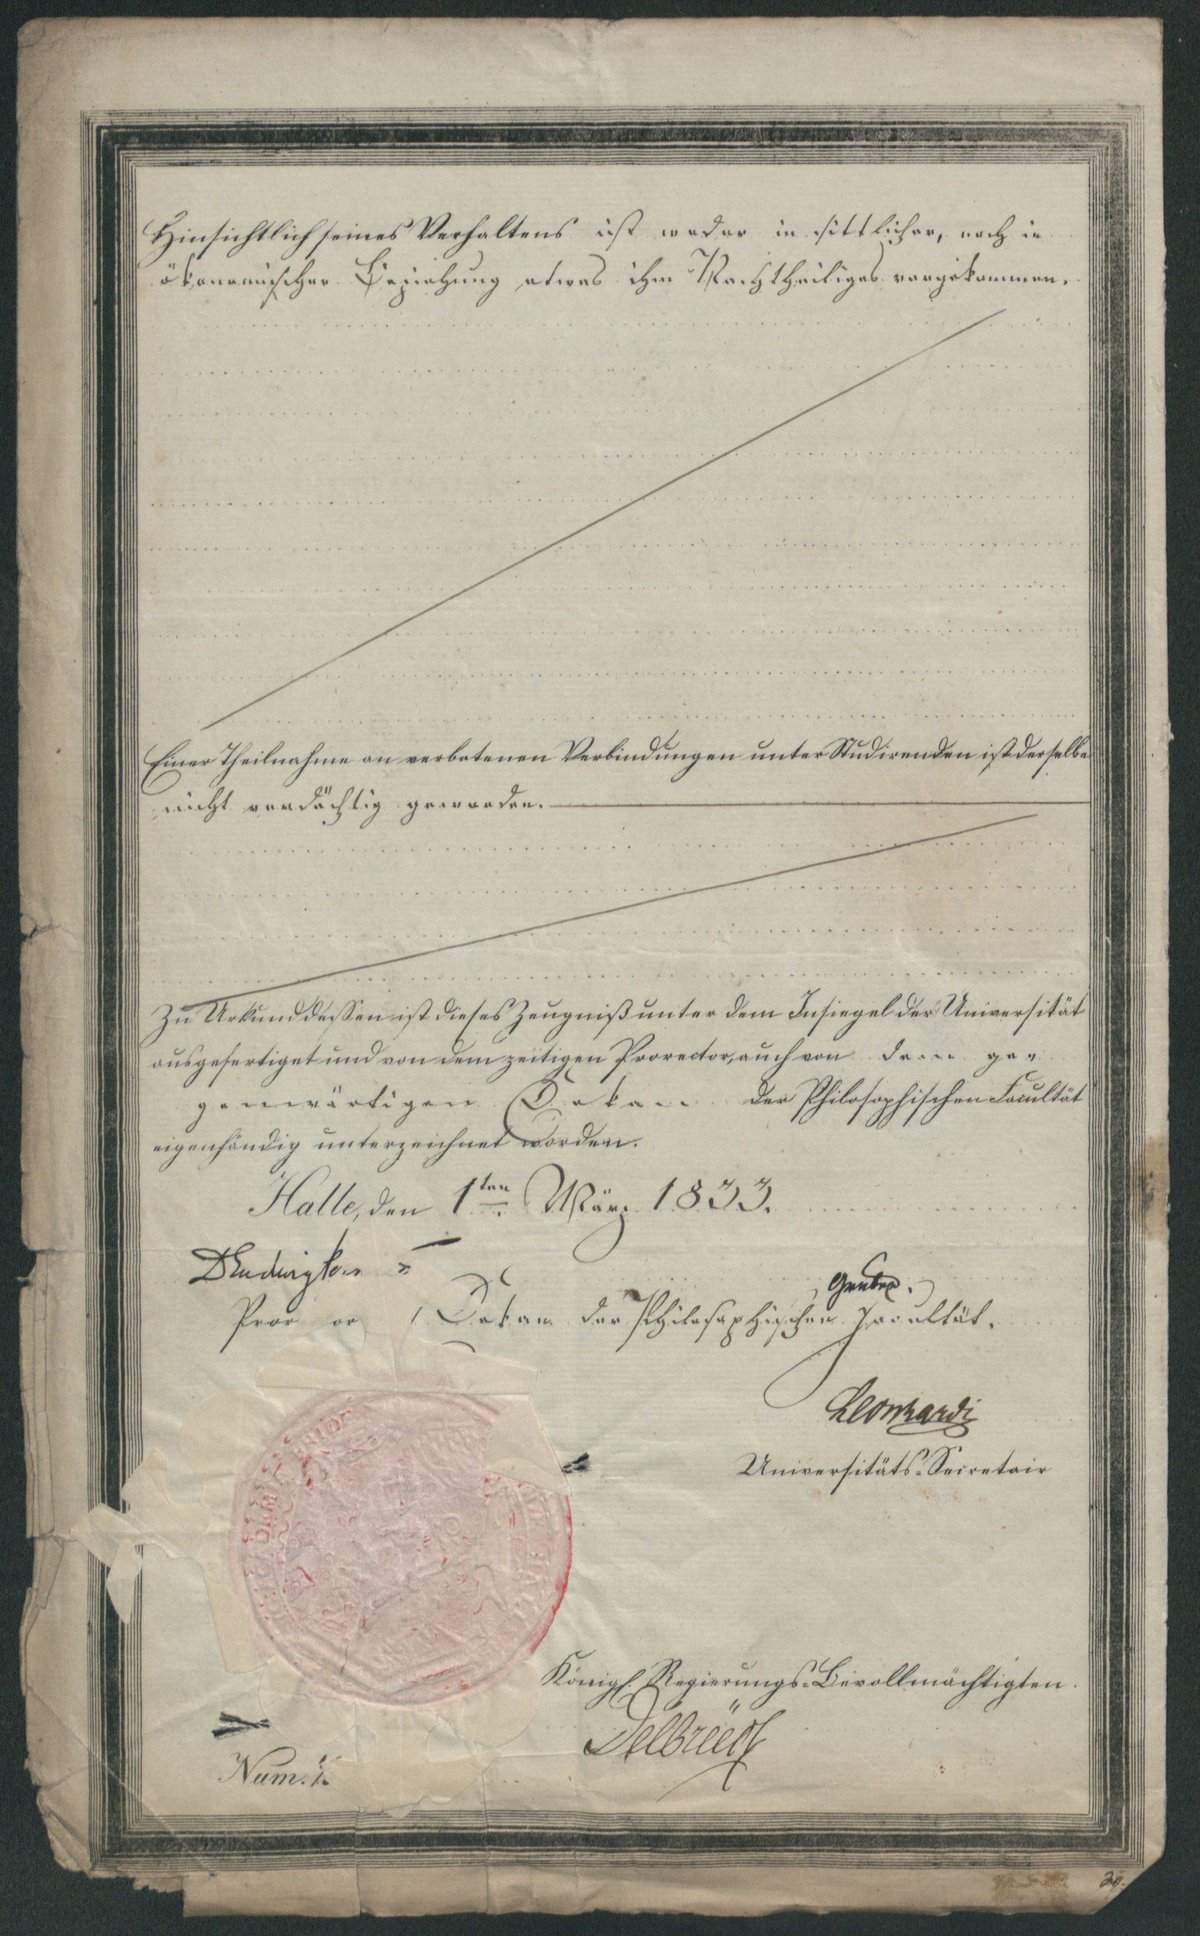 Hinsichtlich seines Verhaltens ist weder in sittlicher, noch in
ökonomischer Beziehung etwas ihm Nachtheiliges vorgekommen.
Einer Theilnahme an verbotenen Verbindungen unter Studirenden ist derselbe
nicht verdächtig geworden.
Zu Urkund dessen ist dieses Zeugniß unter dem Insiegel der Universität
ausgefertiget und von dem zeitigen Prorector, auch von dem ge=
genwärtigen Dekan der Philosophischen Facultät
eigenhändig unterzeichnet worden.
Halle, den 1ten März 1833.
Gruber.
Dekan der Philosophischen Facultät.
Leonhardi
Universitäts-Secretair
Königl. Regierungs-Bevollmächtigten
Delbrück
Num. 1.